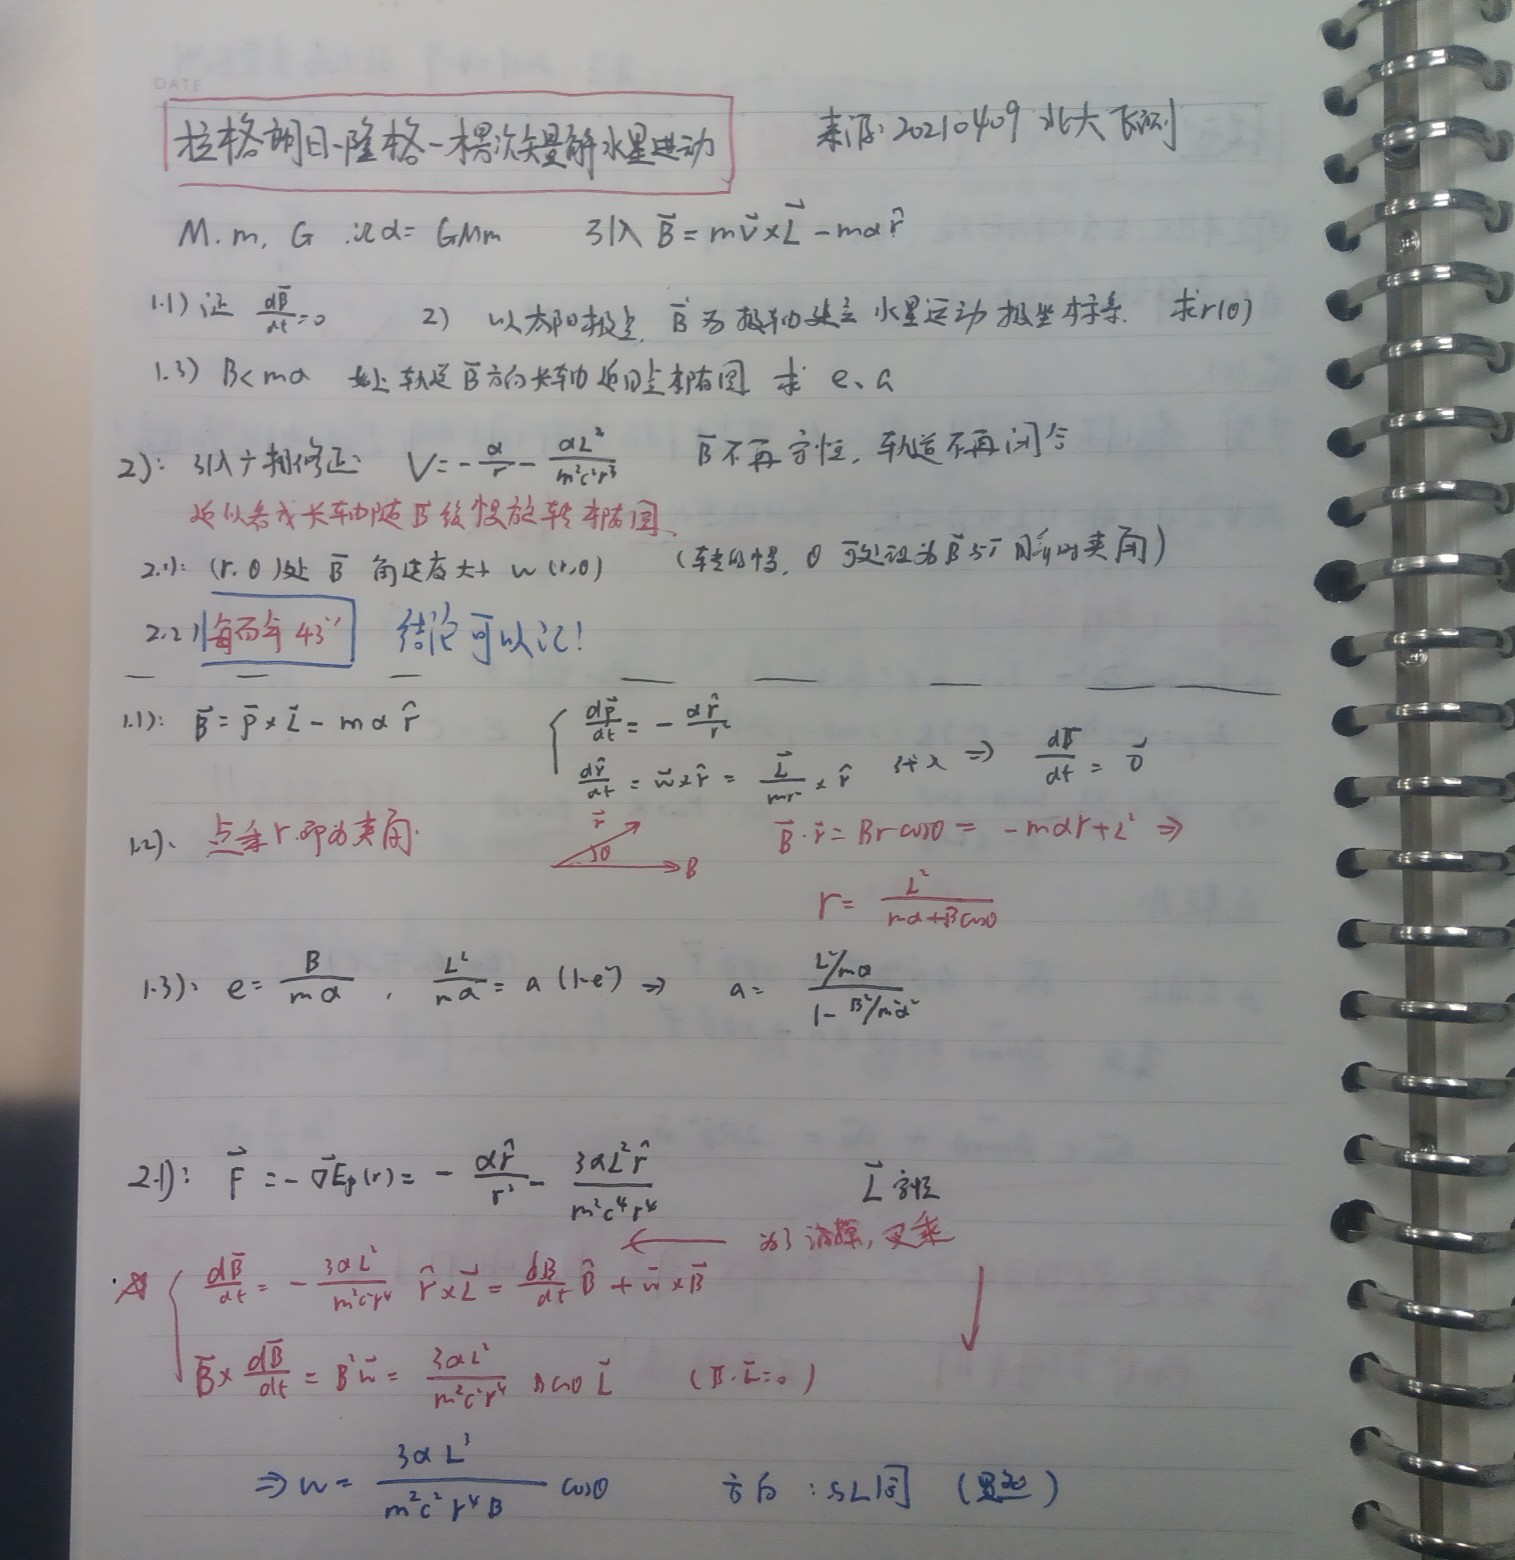 DATE
拉格朗日-隆格-楞次矢量解水星进动 来源: 20210409 北大飞测
M. m, G 记α= GMm 引入 B⃗ = mv⃗×L⃗ - mα r̂
1.1) 证 dB⃗/dt=0 2) 以太阳极点, B⃗ 为极轴建立水星运动极坐标系. 求r(θ)
1.3) B<mα 如上轨道B⃗方向长轴近日点椭圆 求 e、a
2): 引入广相修正 V= -α/r - αL²/m²c²r³ B⃗不再守恒, 轨道不再闭合
近似看成长轴随B⃗缓慢旋转椭圆、
2.1): (r.θ)处 B⃗ 角速度大小 w(r,θ) (转的慢, θ 可处设为B⃗与r⃗ 的夹角)
2.2) 每百年 43'' 结论可以记!
1.1): B⃗ = p⃗×L⃗ - mα r̂ { dp⃗/dt = - αr̂/r²
dr̂/dt = w⃗×r̂ = L⃗/mr² × r̂ 代入 ⇒ dB⃗/dt = 0⃗
1.2). 点乘r.即为夹角. r⃗ θ B B⃗·r⃗ = Br cosθ = -mαr+L² ⇒
r= L²/(mα+Bcosθ)
1.3): e= B/mα , L²/mα = a(1-e²) ⇒ a= (L²/mα)/(1- B²/m²α²)
2.1): F⃗ = -∇⃗Ep(r) = - αr̂/r² - 3αL²r̂/m²c⁴r⁴ L⃗守恒
← 为了消掉, 叉乘
☆ { dB⃗/dt = - 3αL²/m²c²r⁴ r̂×L⃗ = dB/dt B̂ + w⃗×B⃗
B⃗× dB⃗/dt = B²w⃗ = 3αL²/m²c²r⁴ Bcosθ L⃗ (B⃗·L⃗=0)
⇒ w = 3αL³/m²c²r⁴B cosθ 方向: 与L同 (显然)